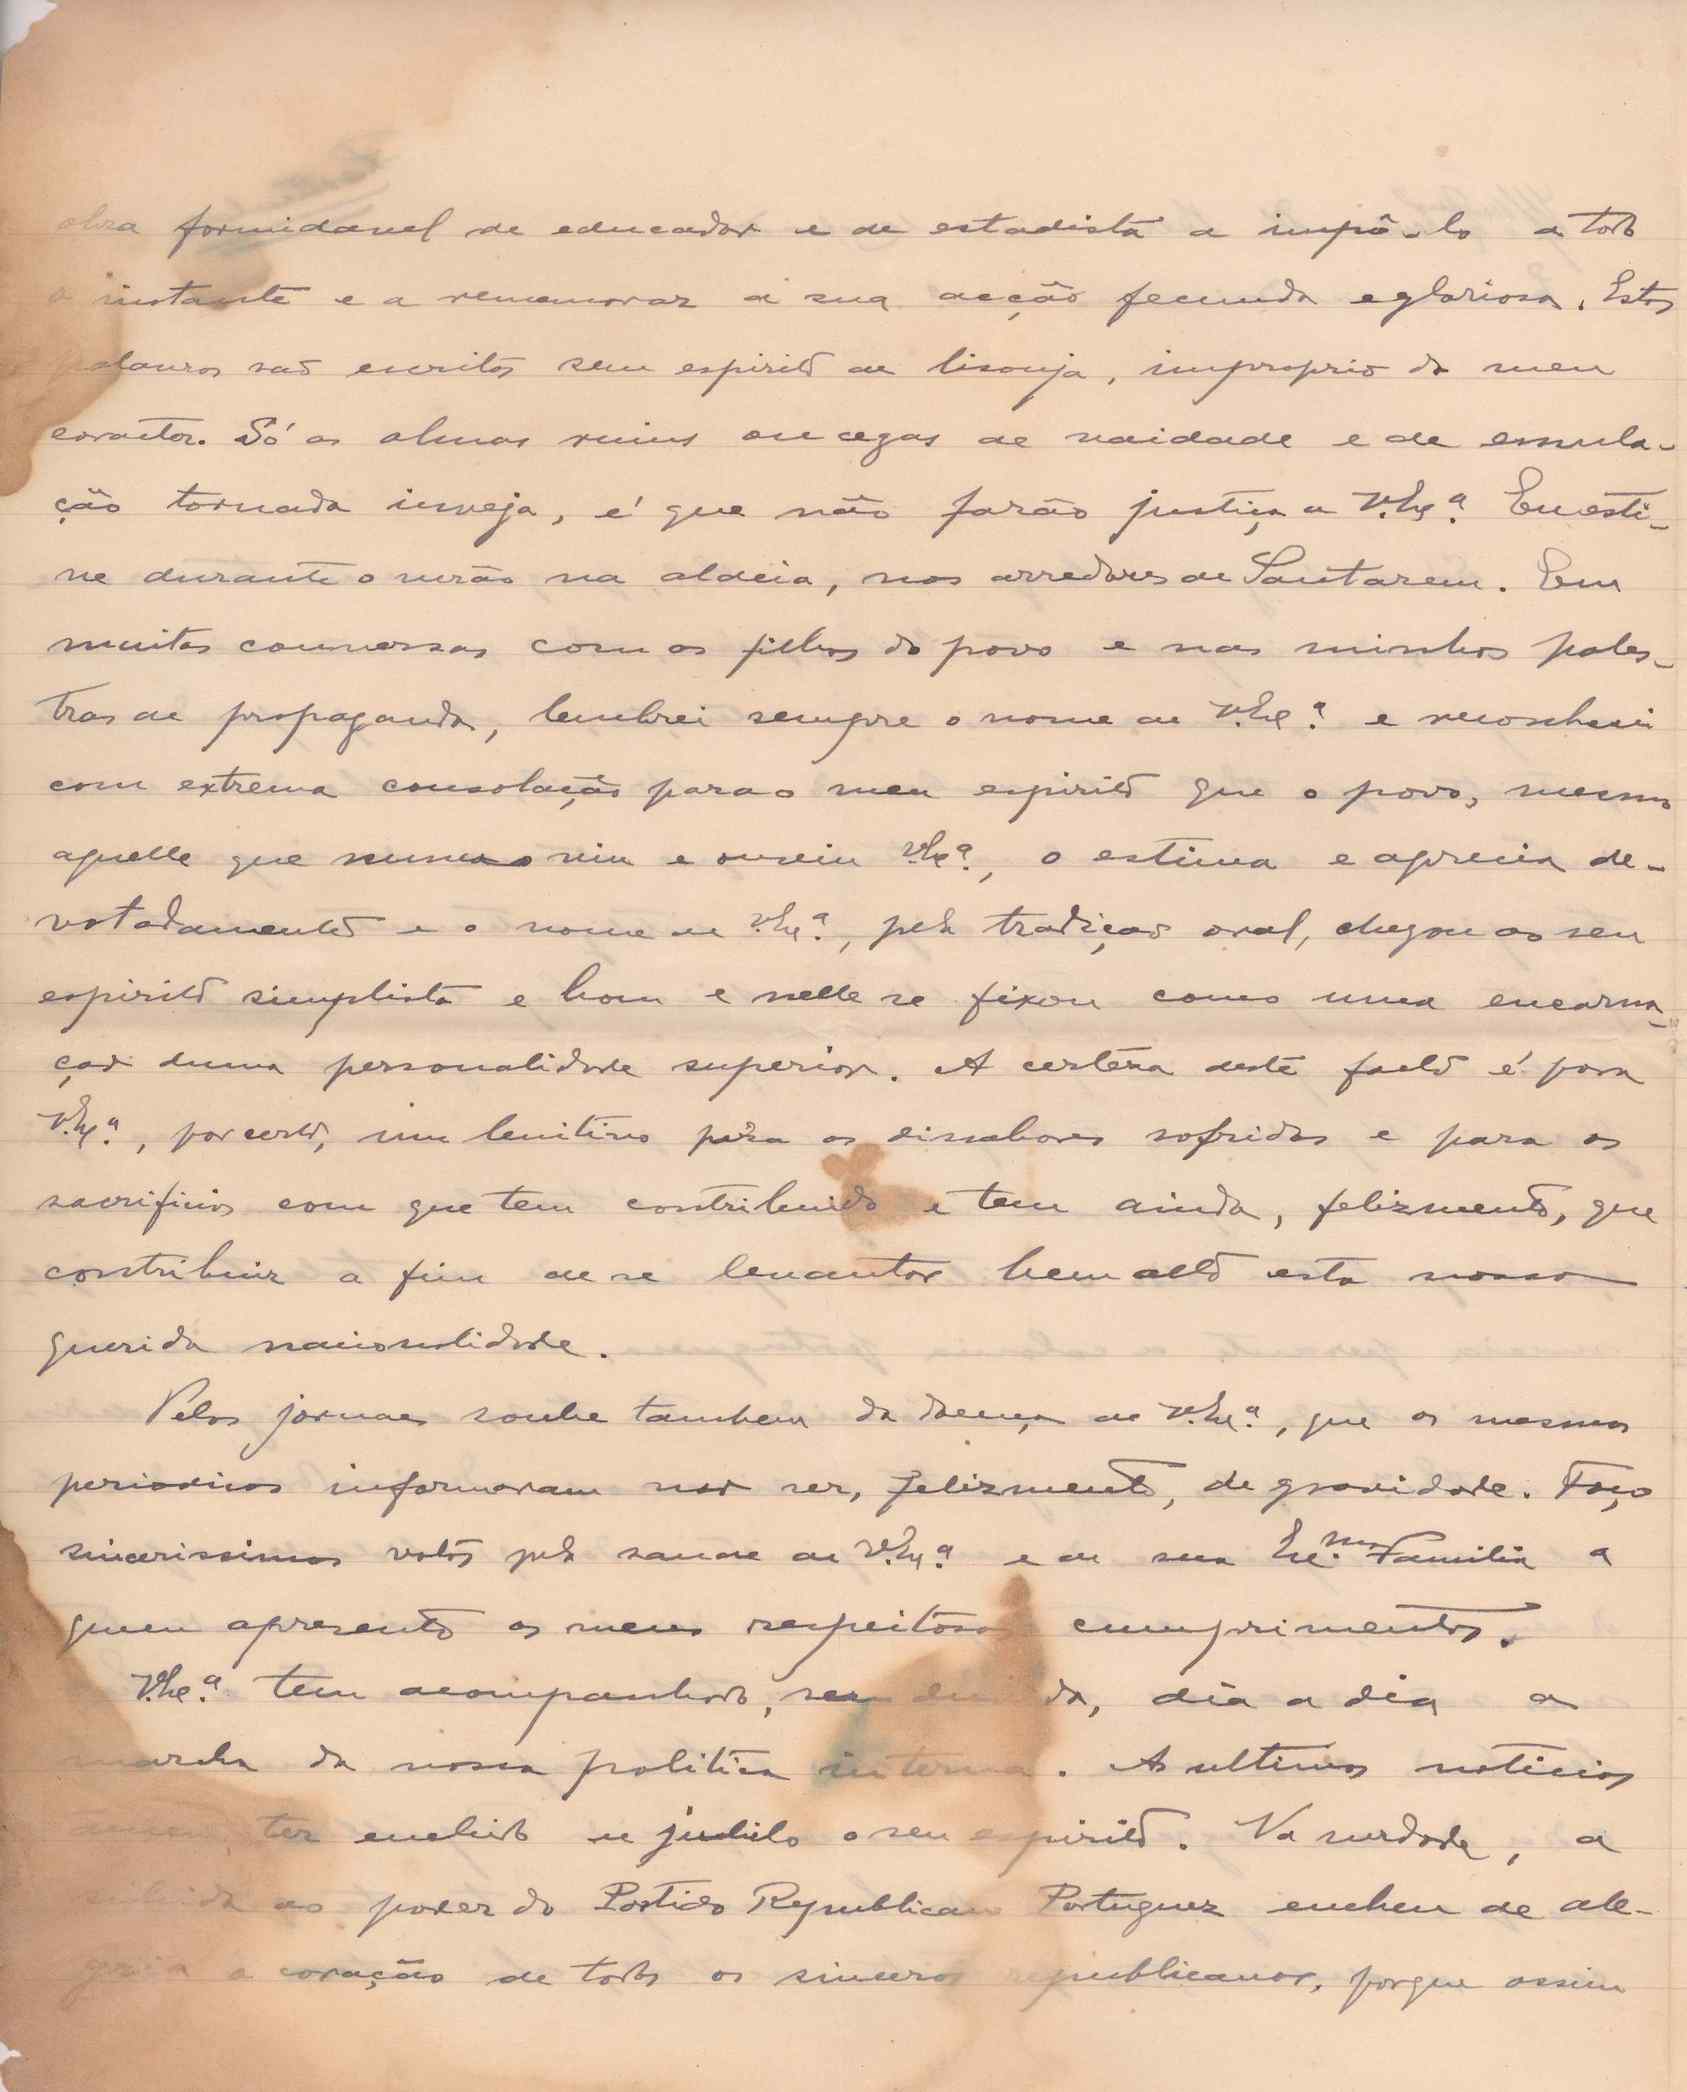 obra formidavel de educador e de estadista a impô-lo a todo
o instante e a rememorar a sua acção fecunda e gloriosa. Estas
palavras são escritas sem espirito de lisonja, improprio do meu
caracter. Só as almas ruins ou cegas de vaidade e de emula-
ção tornada inveja, é que não farão justiça a V. Ex.ª Eu esti-
ve durante o verão na aldeia, nos arredores de Santarem. Em
muitas conversas com os filhos do povo e nas minhas pales-
tras de propaganda, lembrei sempre o nome de V. Ex.ª e reconheci
com extrema consolação para o meu espirito que o povo, mesmo
aquelle que nunca viu e ouviu V. Ex.ª, o estima e aprecia de-
votadamente e o nome de V. Ex.ª, pela tradição oral, chegou ao seu
espirito simplista e bom e nelle se fixou como uma encarna-
ção duma personalidade superior. A certeza deste facto é para
V. Ex.ª, por certo, um lenitivo para os dissabores sofridos e para os
sacrificios com que tem contribuido e tem ainda, felizmente, que
contribuir a fim de se levantar bem alto esta nossa
querida nacionalidade.
Pelos jornaes soube tambem da doença de V. Ex.ª, que os mesmos
periodicos informaram não ser, felizmente, de gravidade. Faço
sincerissimos votos pela saude de V. Ex.ª e de sua Ex.ma Familia a
quem apresento os meus respeitosos cumprimentos.
V. Ex.ª tem acompanhado, sem duvida, dia a dia a
marcha da nossa politica interna. As ultimas noticias
ter enchido de jubilo o seu espirito. Na verdade, a
subida ao poder do Partido Republicano Portuguez encheu de ale-
gria o coração de todos os sinceros republicanos, porque assim